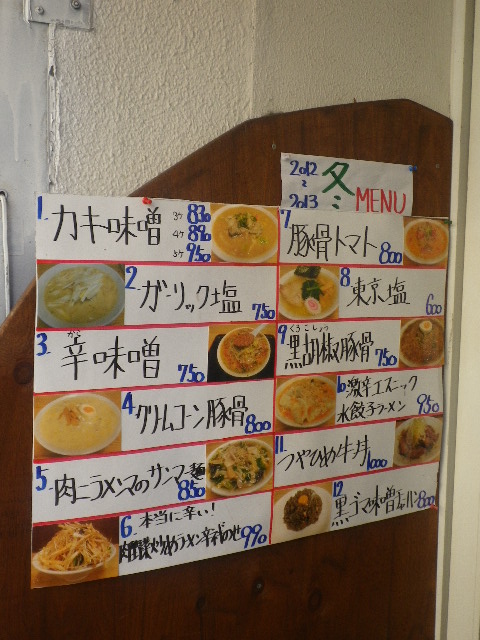 2012
～
2013
冬
MENU
1
カキ味噌
3ケ 830
4ケ 890
5ケ 950
2
ガーリック塩
750
3
辛味噌
から
750
4
クリムコーン豚骨
800
5
肉ニラメンマのサンマー麺
850
6
本当に辛い!
990
7
豚骨トマト
800
8
東京塩
600
9
くろこしょう
黒胡椒豚骨
750
10
激辛エスニック
水餃子ラーメン
950
11
つやひめ牛丼
1000
12
黒ゴマ味噌チャーハン
800